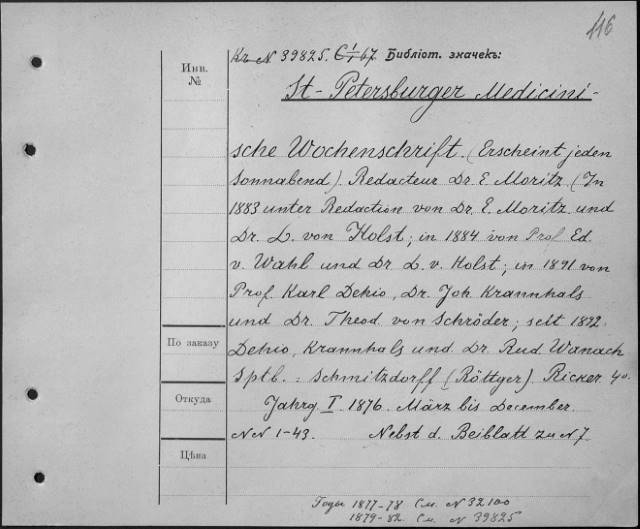 116
Кг N 39825. C 1/1 67 Библіот. значекъ:
Инв.
№
St-Petersburger Medicini-
sche Wochenschrift. (Erscheint jeden
Sonnabend). Redacteur Dr. E. Moritz. (In
1883 unter Redaction von Dr. E. Moritz und
Dr. L. von Holst; in 1884 von Prof. Ed.
v. Wahl und Dr. L. v. Holst; in 1891 von
Prof. Karl Dehio, Dr. Joh. Krannhals
und Dr. Theod. von Schröder; seit 1892.
По заказу
Dehio, Krannhals und Dr. Rud. Wanach
Sptb.: Schmitzdorff (Röttger). Ricker 4o.
Откуда
Jahrg I. 1876. März bis December.
NN 1-43. Nebst d. Beiblatt zu N 7
Цѣна
Годы 1877-78 См. N 32100
1879-82. См. N 39825